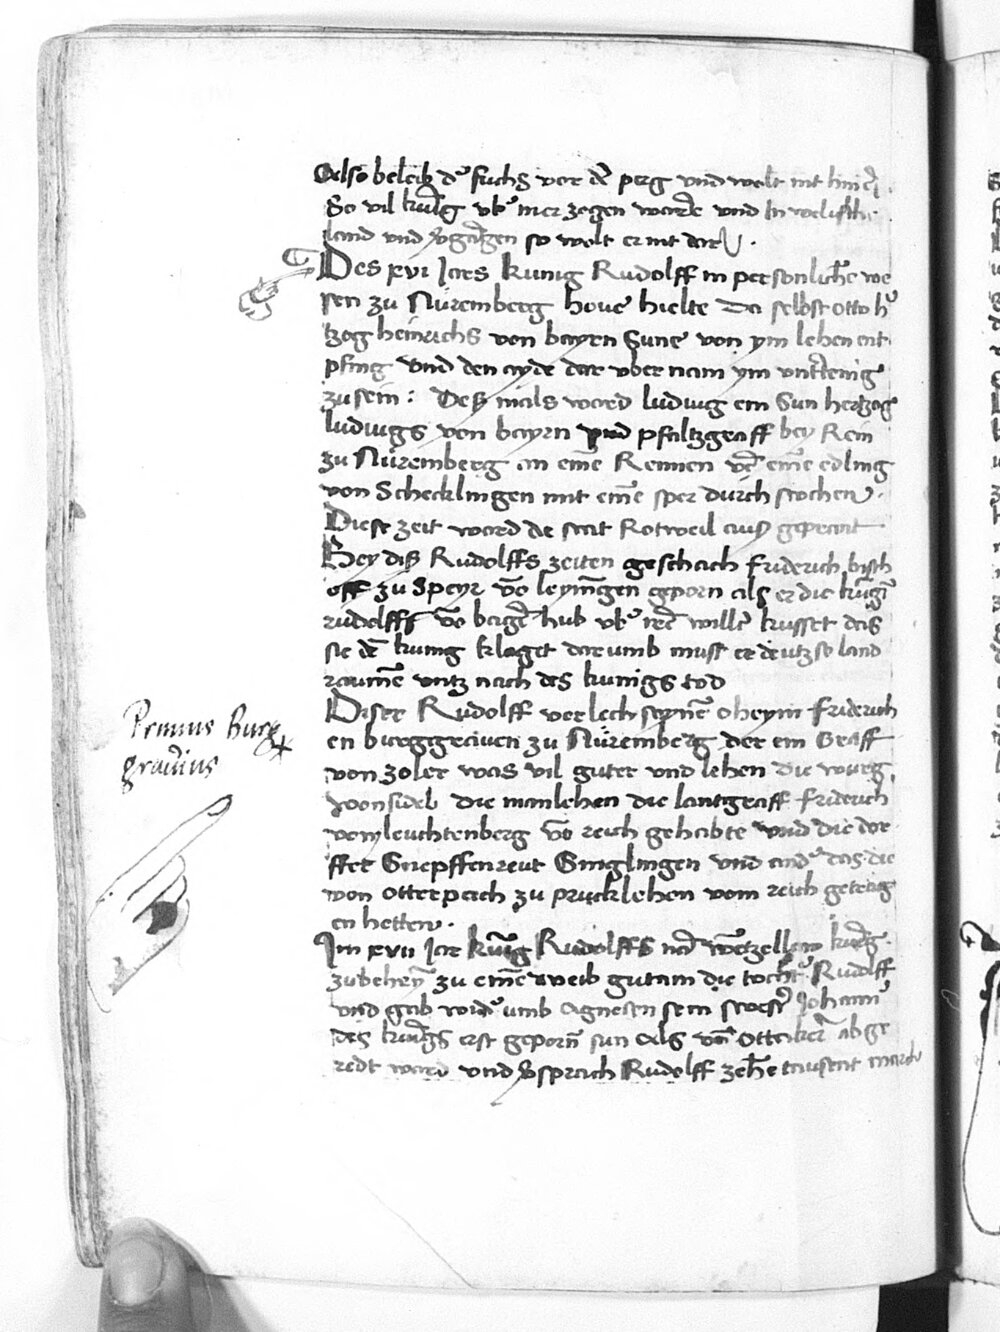 Also beleib d' fuchs vor dē perg vnd wolt nit hinē
So vil kunig vb' mer zogen were vnd in welische
land vnd v'gangen so wolt er nit dar
Des xvi Jares kunig Rudolff in personliche we
sen zu Nüremberg hove hielte Da selbst otto h'
tzog heinrichs von bayrn Sune von ym lehen ent
pfing vnd den ayde dar vber nam ym vnttenig
zu sein : Deß mals ward ludwig ein Sun hertzog
ludwigs von bayrn vnd pfaltzgraff bey Rein
zu Nüremberg an eine Rennen vō eine edling
von Schecklingen mit eine sper durch stochen .
Diese zeit ward die stat Rotweil auß geprant
Bey diß Rudolffs zeiten geschach friderich bisch
off zu Speyr vō leyningen geporn als er die kungī
rudolffs vō hub vb' willē kusset das
sie dē kunig klaget darumb must er deutzse land
raumē vntz nach des kunigs tod
Diser Rudolff verlech seynē oheym friderich
en burggraven zu Nüremberg der ein Graff
von zoler was vil guter vnd lehen die wurg
wonsideb die manlehen die lantgraff friderich
vom leuchtenberg vō reich gehabte vnd die dor
ffer Gnepffenreut Gniglingen vnd and' das die
von otterpach zu prucklehen vom reich getrag
en hetten .
Primus burg
gravius
Im xvii Jar kunig Rudolffs wentzellaw kunig
zubehem zu eine weib gutam die tocht' Rudolff
vnd gab wid' umb agnesen sein swest' Johann'
des kunigs erst geporn sun als von ottaker abge
redt ward vnd v'sprach Rudolff zehē tausent marck